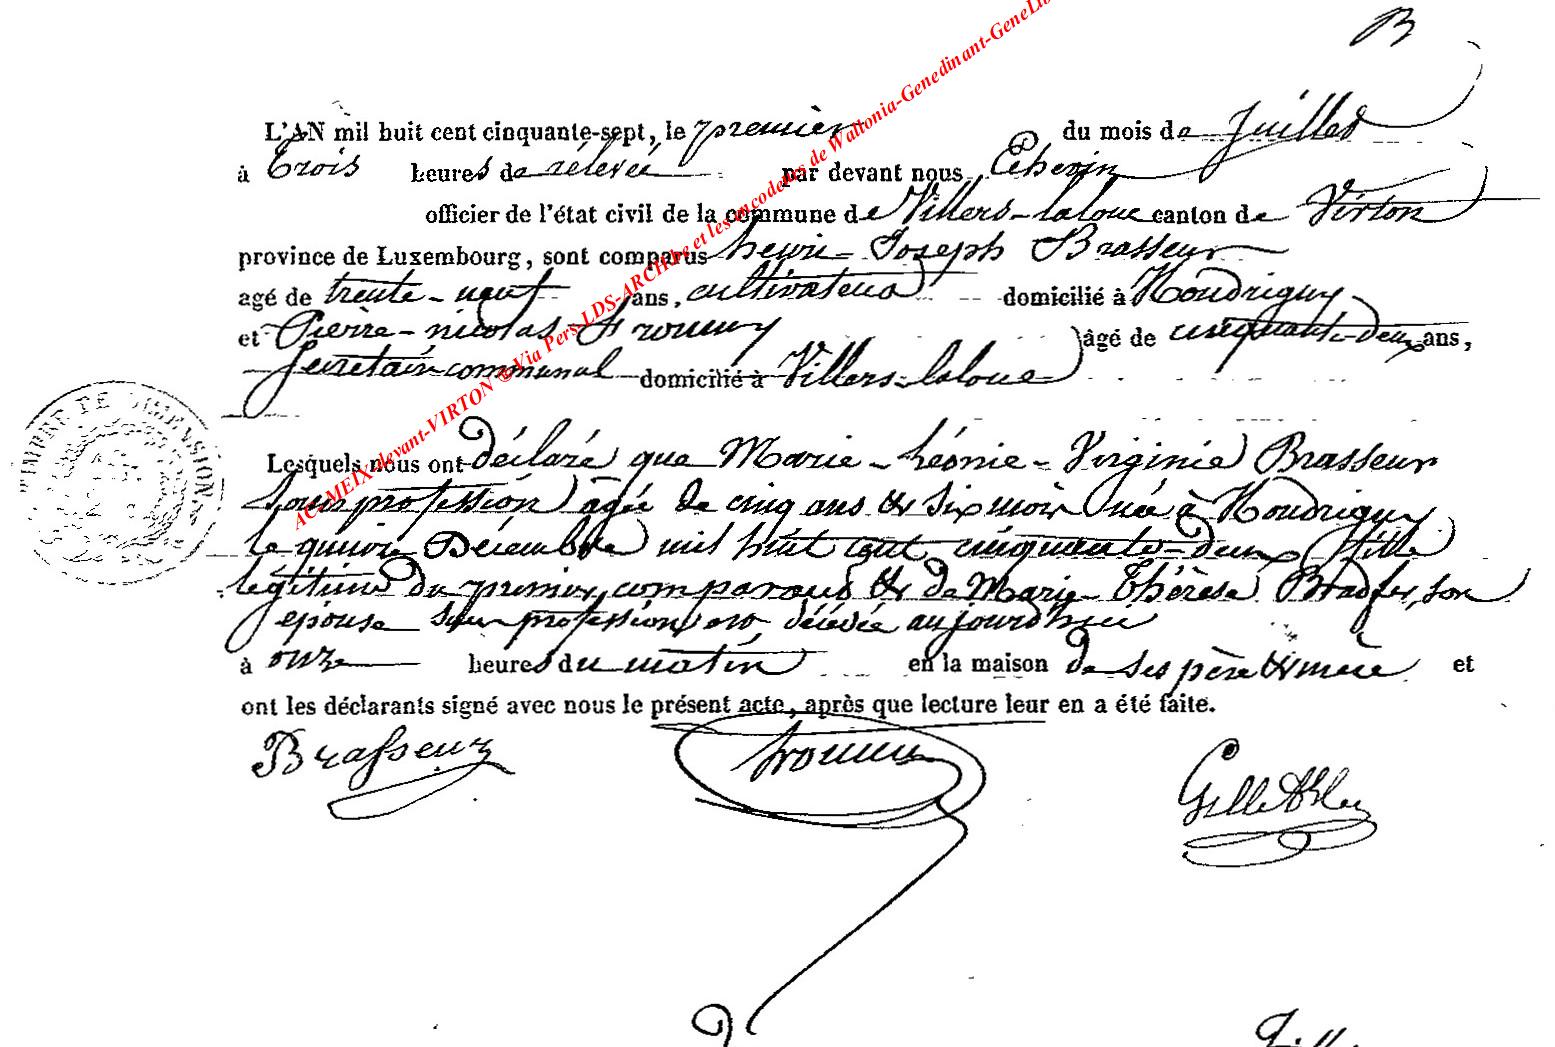 B
L'AN mil huit cent cinquante-sept, le premier du mois de Juillet
à trois heures de rélevée par devant nous Echevin
officier de l'état civil de la commune de Villers-laloue canton de Virton
province de Luxembourg, sont comparus henri-Joseph Brasseur
agé de trente-neuf ans, cultivateur domicilié à Houdrigny
et Pierre-nicolas âgé de cinquante-deux ans,
Secrétaire communal domicilié à Villers-laloue
TIMBRE DE DIMENSION
Lesquels nous ont déclaré que Marie-Léonie-Virginie Brasseur
sans profession âgée de cinq ans & six mois née à Houdrigny
le quinze Décembre mil huit cent cinquante-deux fille
légitime du premier comparant & de Marie-Thérèse Bradfer, son
épouse sans profession, est décédée aujourd'hui
à onze heures du matin en la maison de ses père & mère et
ont les déclarants signé avec nous le présent acte, après que lecture leur en a été faite.
Brasseur
AC-MEIX-devant-VIRTON ® Via Pers-LDS-ARCHbe et les encodeurs de Wallonia-Genedinant-GeneLib